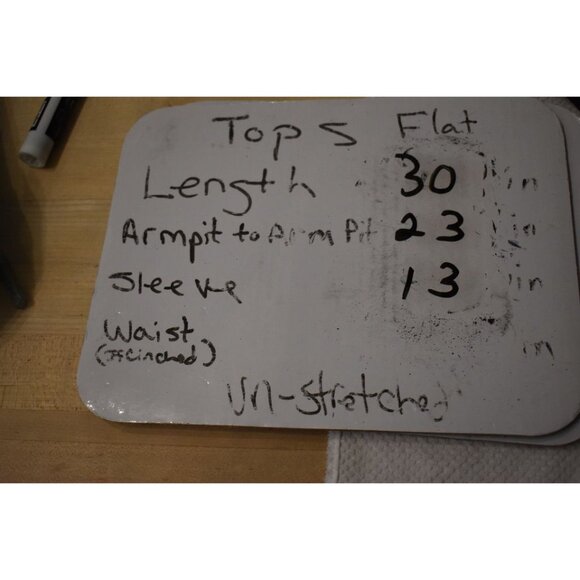 Tops Flat
Length 30 in
Armpit to Arm Pit 23 in
Sleeve 13 in
Waist in
(If Cinched)
Un-stretched